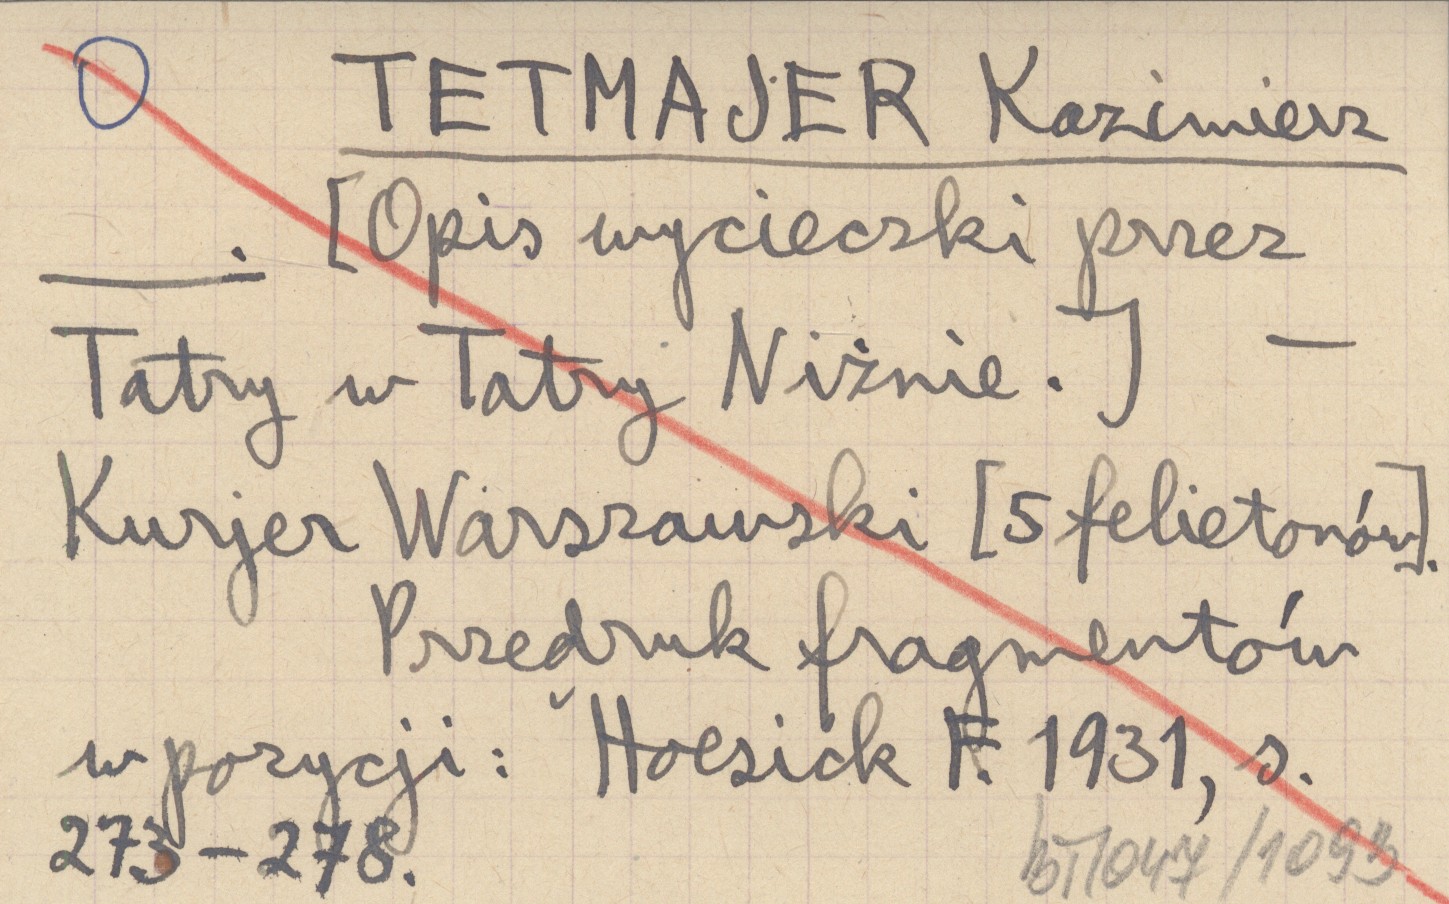 TETMAJER Kazimierz
____. [Opis wycieczki przez
Tatry w Tatry Niżnie.] —
Kurjer Warszawski [5 felietonów].
Przedruk fragmentów
w pozycji: Hoesick F. 1931, s.
273-278.
/1093